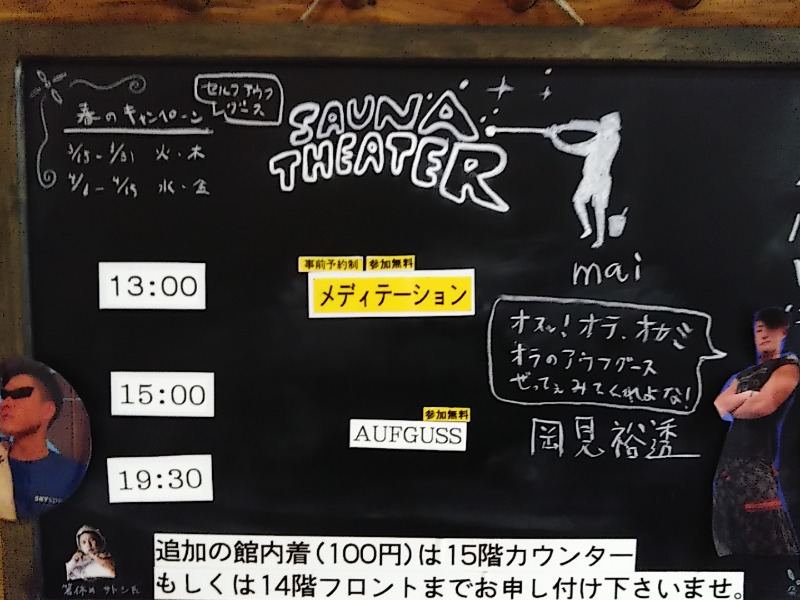 春のキャンペーン
セルフアウフ
レゲース
3/15 - 3/31 火・木
4/1 - 4/19 水・金
SAUNA
THEATER
mai
13:00
事前予約制 参加無料
メディテーション
オスッ!オラ、オカミ
オラのアウフグース
ぜってぇみてくれよな!
15:00
参加無料
AUFGUSS
岡見裕透
19:30
追加の館内着(100円)は15階カウンター
もしくは14階フロントまでお申し付け下さいませ。